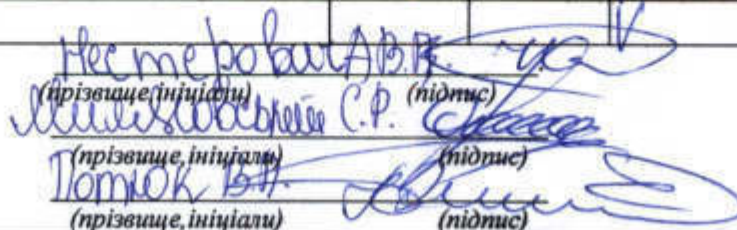 Нестерович А.В.
(прізвище, ініціали) (підпис)
С.Р.
(прізвище, ініціали) (підпис)
Потюк В.П.
(прізвище, ініціали) (підпис)